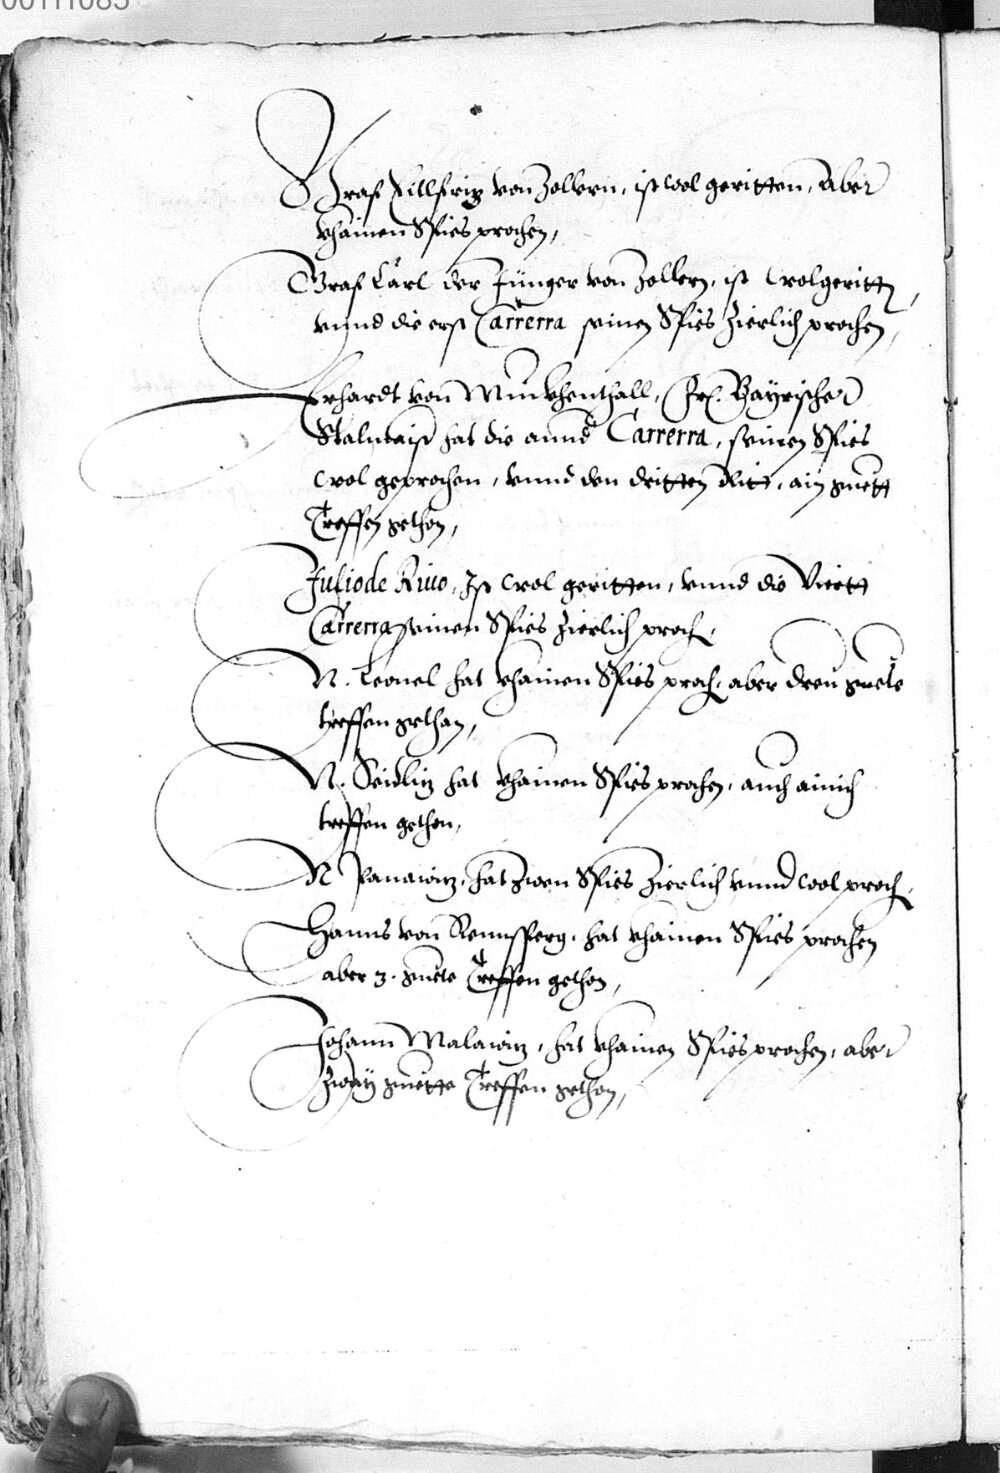 00111085
Graf Eitlfritz von Zollern, ist wol geritten, Aber
khainen Spies prochen,
Graf Carl der Jünger von Zollern, ist wol geritten,
vnnd die erst Carrerra seinen Spies Zierlich prochen,
Erhardt von Muckhenthall, Bayrischer
hat die annd Carrerra, seinen Spies
wol geprochen, vnnd den dritten Ritt, ain guett
Treffen gethon,
Julio de Riuo, Ist wol geritten, vnnd die Viertt
Carrerra seinen Spies Zierlich proch,
N. Leonel hat khainen Spies proch, aber dreu guete
treffen gethan,
N. Seidlitz hat khainen Spies prochen, auch ainich
treffen gethon,
N Panawitz, hat zwen Spies Zierlich vnnd wol proch,
Hanns von Remsperg, hat khainen Spies prochen
aber 3. guete Treffen gethon,
Johann Malawitz, hat khainen Spies prochen, aber
Zway guette Treffen gethon,